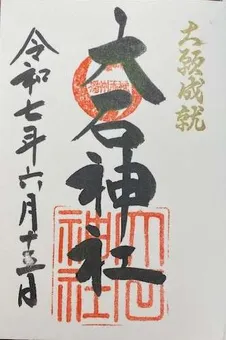 大願成就
大石神社
令和七年六月十三日
大石
神社